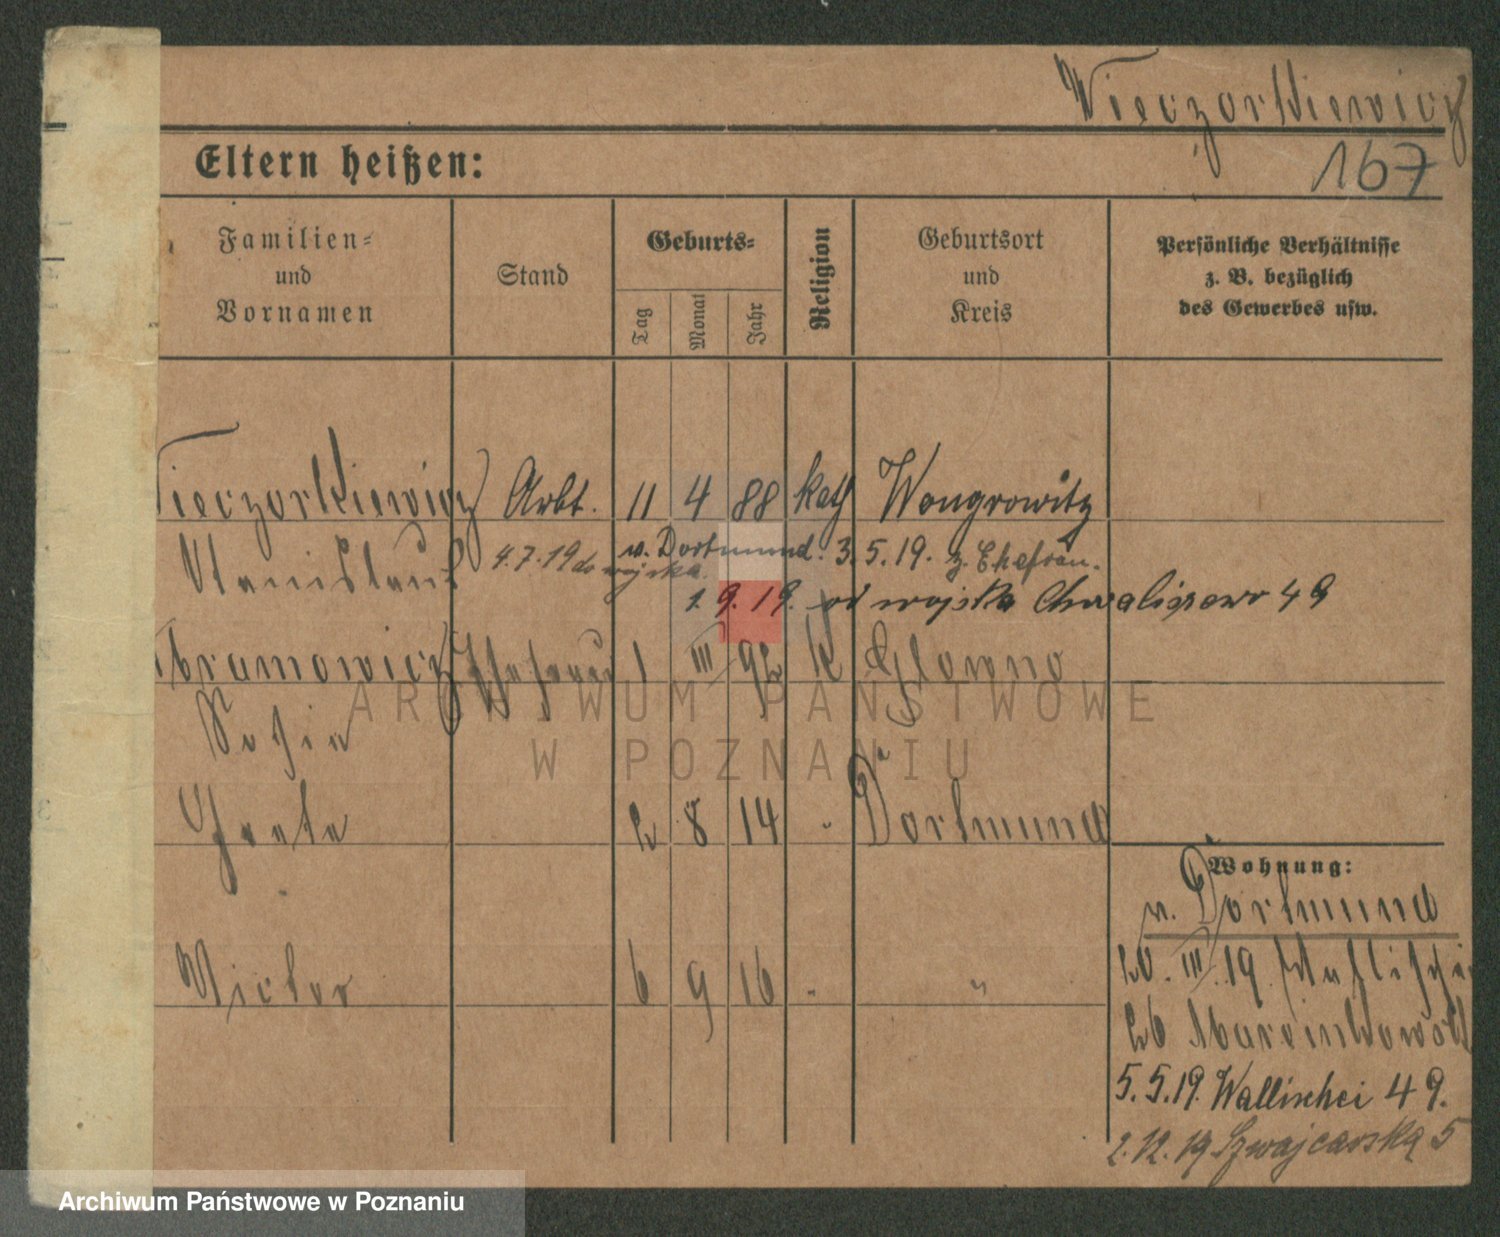 Wieczorkiewicz
167
Eltern heißen:
Familien-
und
Vornamen
Stand
Geburts-
Tag
Monat
Jahr
Religion
Geburtsort
und
Kreis
Persönliche Verhältnisse
z. B. bezüglich
des Gewerbes usw.
Wieczorkiewicz Arbt. 11 4 88 kath Wongrowitz
Stanislaus 4.7.19 do wojska. v. Dortmund. 3.5.19. z. Ehefrau.
1.9.19. od wojska Chwaliszewo 49
Abramowicz Ehefrau 1 III 92 k Glowno
Sofie
2 8 14 " Dortmund
Victor 6 9 16 " "
Wohnung:
v. Dortmund
20. III. 19.
26
5.5.19. Wallischei 49.
2.12.19 Szwajcarska 5
ARCHIWUM PAŃSTWOWE
W POZNANIU
Archiwum Państwowe w Poznaniu